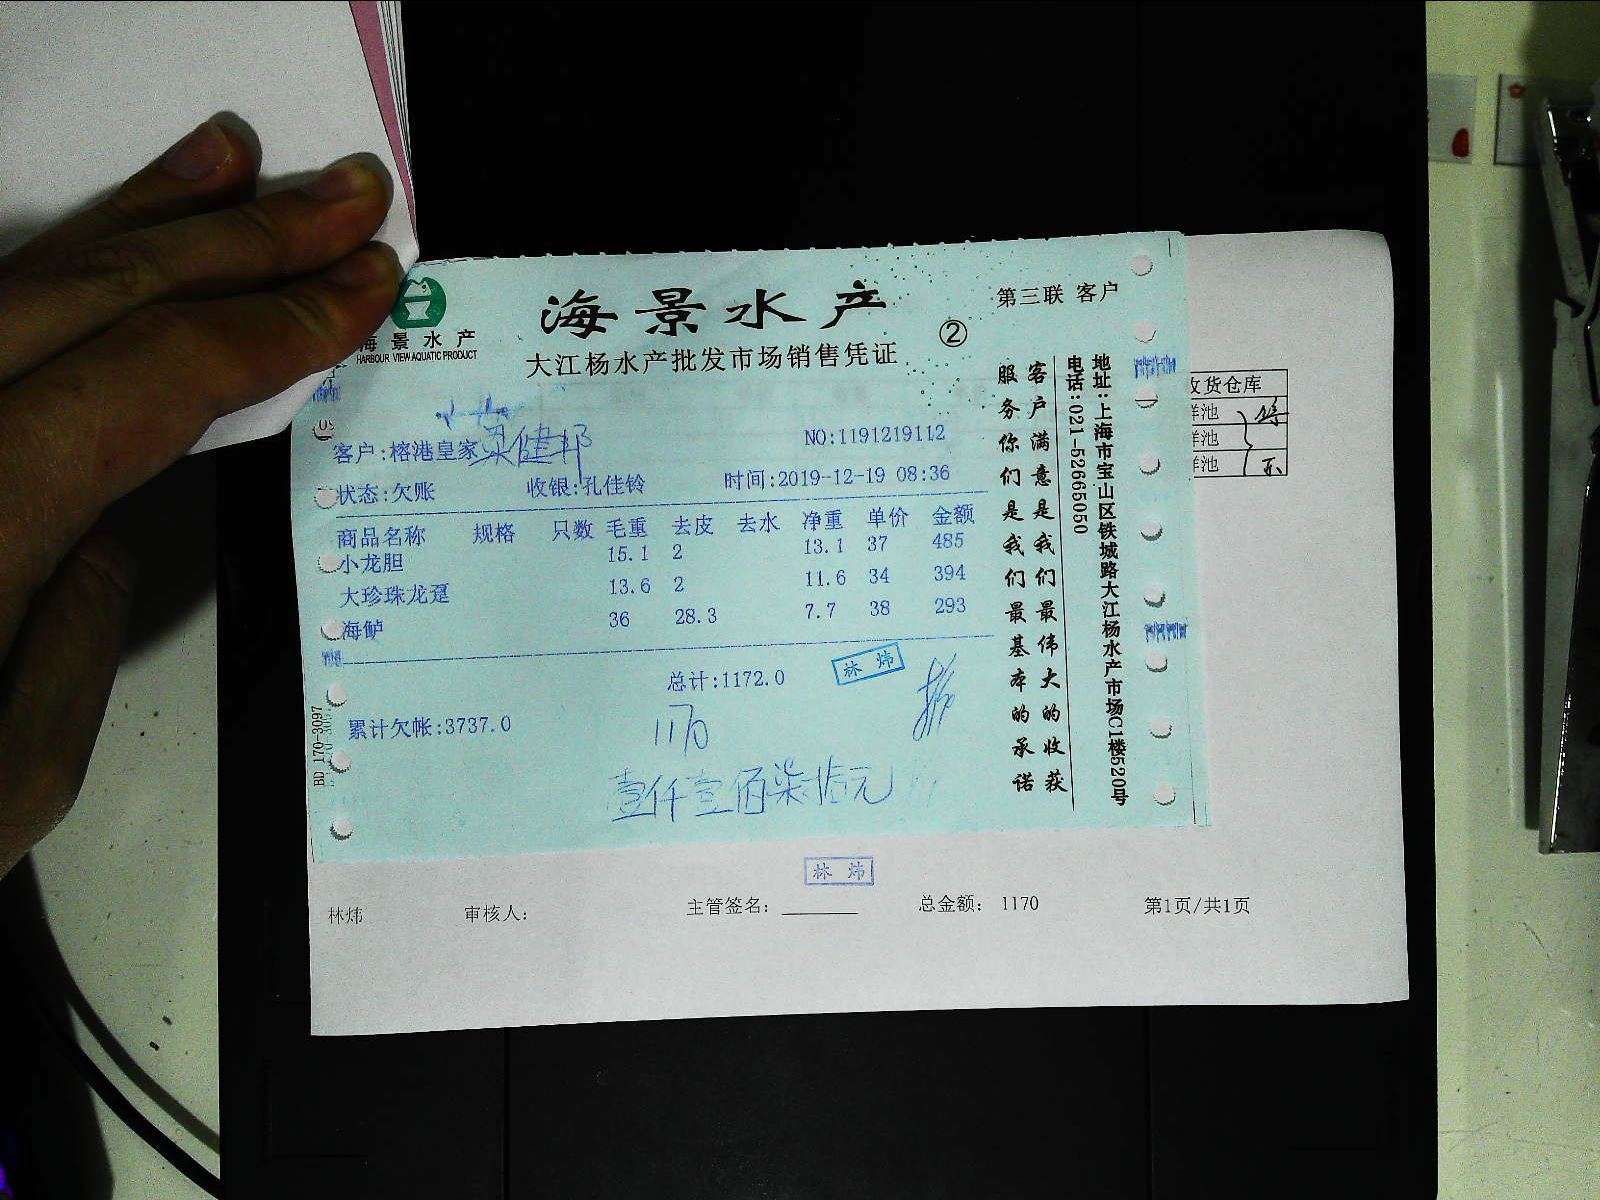 海景水产
HARBOUR VIEW AQUATIC PRODUCT
海景水产
大江杨水产批发市场销售凭证
②
第三联 客户
客户:榕港皇家 梁健邦
NO:1191219112
状态:欠账 收银:孔佳铃 时间:2019-12-19 08:36
商品名称 规格 只数 毛重 去皮 去水 净重 单价 金额
小龙胆 15.1 2 13.1 37 485
大珍珠龙趸 13.6 2 11.6 34 394
海鲈 36 28.3 7.7 38 293
总计:1172.0
林炜
累计欠帐:3737.0
1170
壹仟壹佰柒拾元
客户满意是我们最伟大的收获
服务你们是我们最基本的承诺
地址:上海市宝山区铁城路大江杨水产市场C1楼520号
电话:021-52665050
BD 170-3097
收货仓库
鲜池
鲜池
鲜池
林炜
林炜 审核人: 主管签名: 总金额: 1170 第1页/共1页